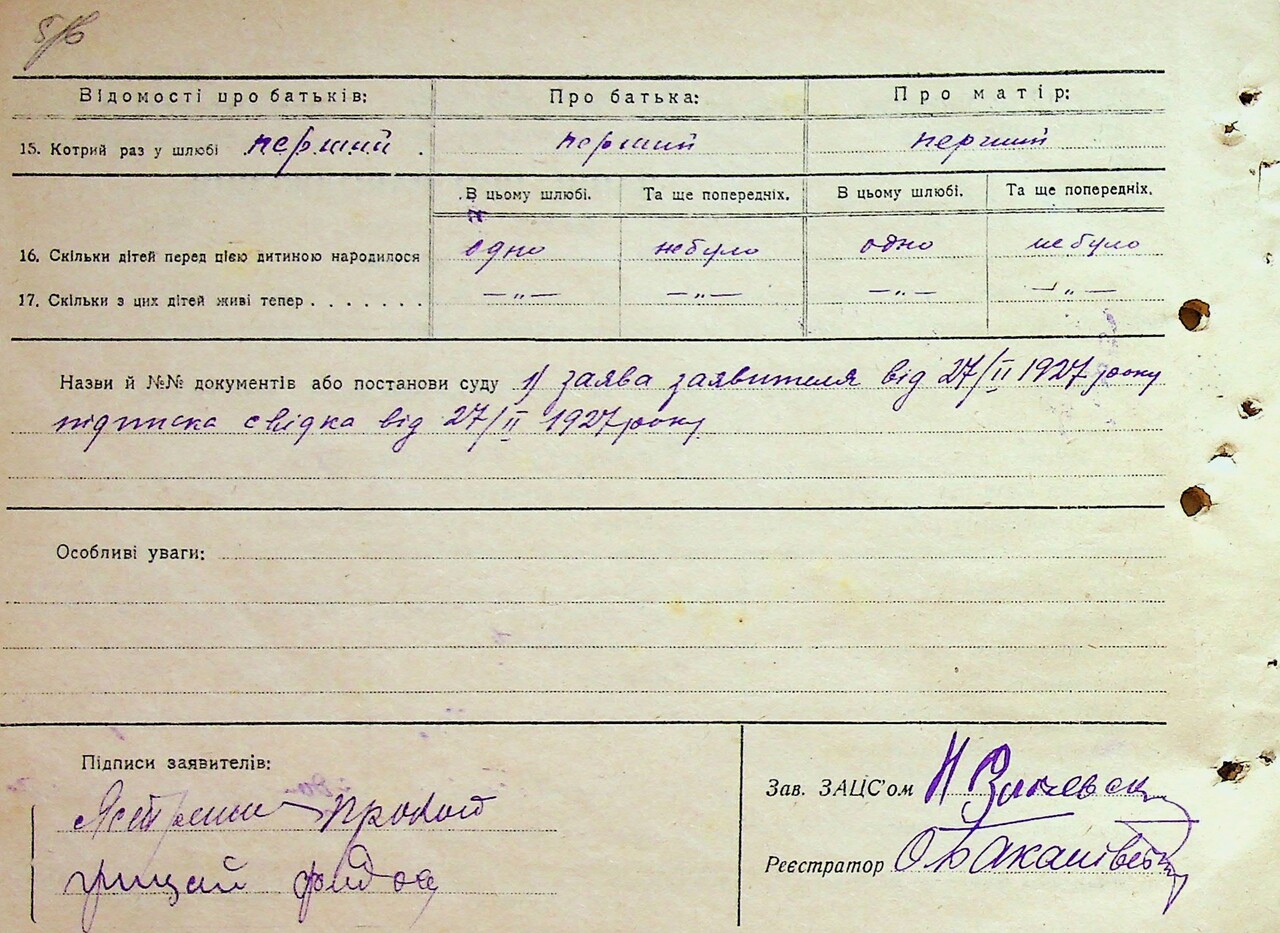 5/6
Відомості про батьків: Про батька: Про матір:
15. Котрий раз у шлюбі перший . перший перший
В цьому шлюбі. Та ще попередніх. В цьому шлюбі. Та ще попередніх.
16. Скільки дітей перед цією дитиною народилося одно небуло одно небуло
17. Скільки з цих дітей живі тепер . . . . . . . —„— —„— —„— —„—
Назви й №№ документів або постанови суду 1) заява заявителя від 27/II 1927 року
підписка свідка від 27/II 1927 року
Особливі уваги:
Підписи заявителів:
Прокоп
грицай
Зав. ЗАЦС'ом Н
Реєстратор